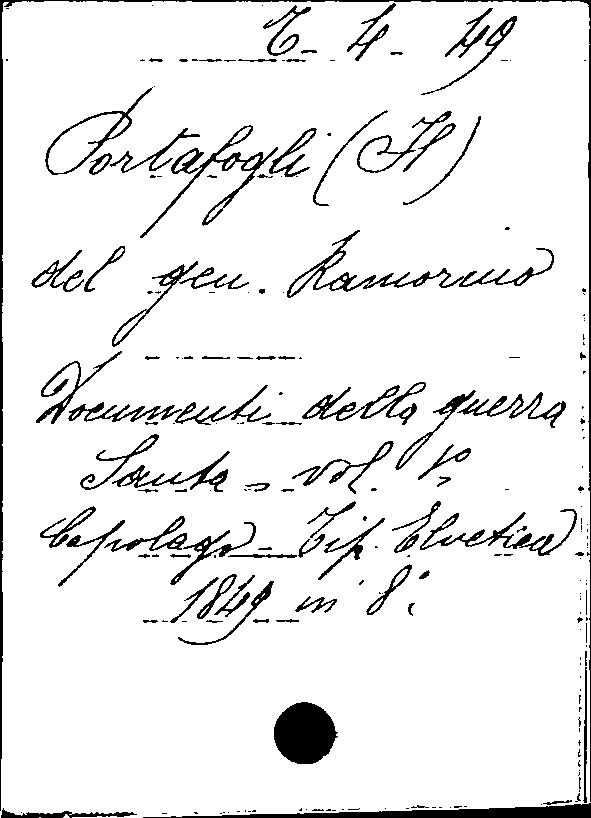 C-4-49
Portafogli (Il)
del gen. Ramorino
Documenti della guerra
Santa - vol. 1º
Capolago - Tip. Elvetica
1849 in 8º.